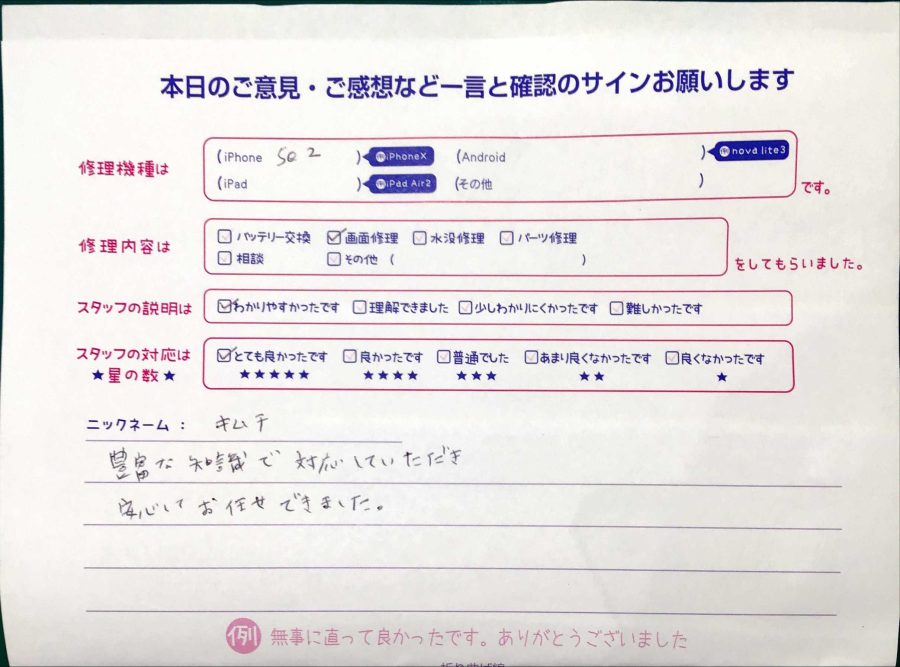 本日のご意見・ご感想など一言と確認のサインお願いします
修理機種は
(iPhone SE 2 ) 例iPhoneX (Android ) 例nova lite3
(iPad ) 例iPad Air2 (その他 ) です。
修理内容は
バッテリー交換 画面修理 水没修理 パーツ修理
相談 その他 ( ) をしてもらいました。
スタッフの説明は わかりやすかったです 理解できました 少しわかりにくかったです 難しかったです
スタッフの対応は とても良かったです 良かったです 普通でした あまり良くなかったです 良くなかったです
★星の数★ ★★★★★ ★★★★ ★★★ ★★ ★
ニックネーム: キムチ
豊富な知識で対応していただき
安心してお任せできました。
例 無事に直って良かったです。ありがとうございました